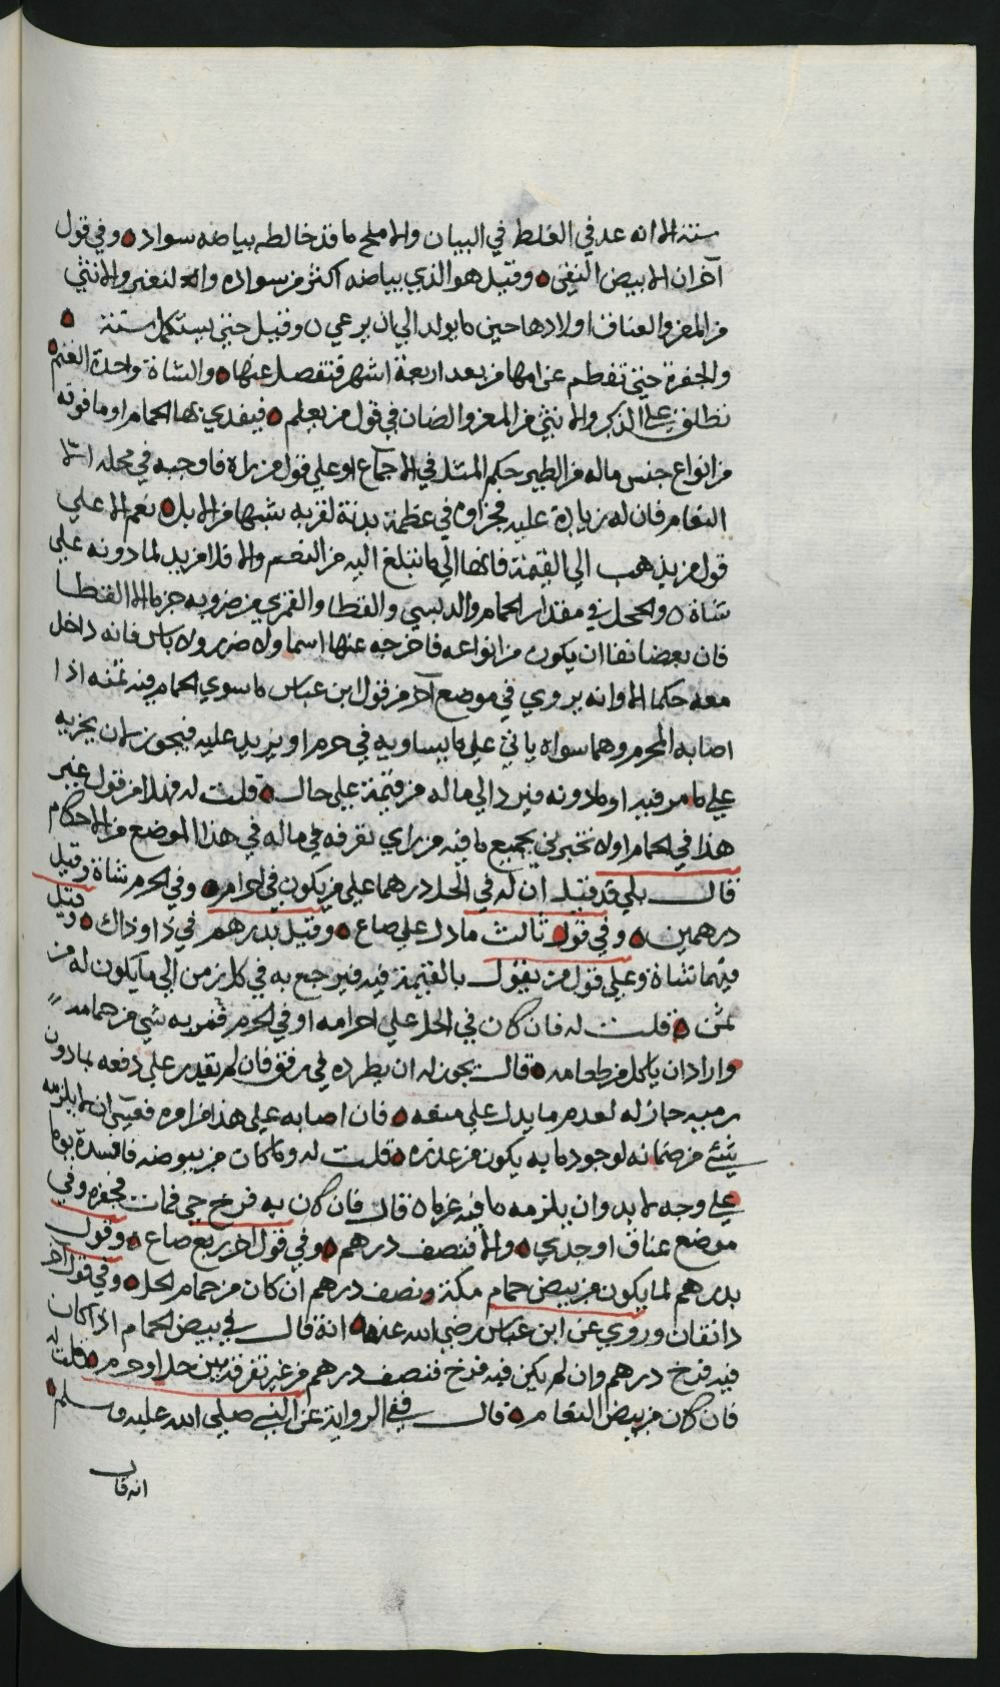 سنة الا انه عد في الغلط في البيان والاملح ما قد خالطه بياضه سواد وفي قول
آخر ان الابيض النقي وقيل هو الذي بياضه اكثر من سواده والا لنغير والانثي
من المعز والعناق اولادها حين ما يولد الي ان يرعي وقيل حتي يستكمل سنة
والجفرة حتي تفطم عن امها من بعد اربعة اشهر فتفصل عنها والشاة واحدة الغنم
تطلق علي الذكر والانثي من المعز والضان في قول من يعلم فيفدي بها الحمام او ما فوقه
من انواع جنس ماله من الطير حكم المثل في الاجماع او علي قول من راه فاوجبه في محله الا
النعام فان له زيادة عليه فجزاوه في عظمة بدنة لقربه شبها من الابل نعم الا علي
قول من يذهب الي القيمة فانها الي ما تبلغ اليه من النعم والا فلا مزيد لما دونه علي
شاة والحجل في مقدار الحمام والدبسي والقطا والقمري من ضروبه جزما الا القطا
فان بعضا نفا ان يكون من انواعه فاخرجه عنها اسما ولا ضرر ولا باس فانه داخل
معه حكما الا وانه يروي في موضع آخر من قول ابن عباس ما سوي الحمام فيه ثمنه اذا
اصابه المحرم وهما سواه ياتي علي ما يساويه في حرم او يزيد عليه فيجوز لان يجزيه
علي ما مر فيه او ما دونه فيرد الي ماله من قيمة علي حال قلت له فهذا من قول غير
هذا في الحمام اولا تخبرني بجميع ما فيه من راي تعرفه في ماله في هذا الموضع من الاحكام
قال بلي قد قيل ان له في الحل درهما علي من يكون في احرامه وفي الحرم شاة وقيل
درهمين وفي قول ثالث ما دل علي صاع وقيل بدرهم في ذا او ذاك وقيل
فيهما شاة وعلي قول من يقول بالقيمة فيه فيرجع به في كل زمن الي ما يكون له من
ثمن قلت له فان كان في الحل علي احرامه او في الحرم فمر به شي من حمامه
واراد ان ياكل من طعامه قال يجوز له ان يطرده في رفق فان لم يقدر علي دفعه بما دون
رميه جاز له لعدم ما يدل علي منعه فان اصابه علي هذا من امره فعسي ان لا يلزمه
شئ من ضمانه لوجود ما به يكون من عذره قلت له وما كان من بيوضه فافسده يوما
علي وجه لابد وان يلزمه ما فيه غرما قال فان كان به فرخ حي فمات فجفره وفي
موضع عناق او جدي والا فنصف درهم وفي قول اخر ربع صاع وقول
بدرهم لما يكون من بيض حمام مكة ونصف درهم ان كان من حمام الحل وفي قول آخر
دانقان وروي عن ابن عباس رضي الله عنهما انه قال في بيض الحمام اذا كان
فيه فرخ درهم وان لم يكن فيه فرخ فنصف درهم من غير تفرقة بين حل او حرم قلت له
فان كان من بيض النعام قال ففي الرواية عن النبي صلي الله عليه وسلم
انه قال